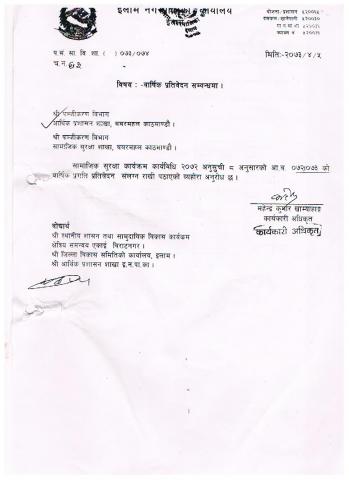 इलाम नगरपालिका कार्यालय
योजना/प्रशासन ५२००५५
प.सं. सा. वि. शा. ( ) ०७३/०७४
च.न. ६२
मिति:-२०७३/४/५
विषय : -वार्षिक प्रतिवेदन सम्वन्धमा ।
श्री पञ्जीकरण विभाग
आर्थिक प्रशासन शाखा, बबरमहल काठमाण्डौ ।
श्री पञ्जीकरण विभाग
सामाजिक सुरक्षा शाखा, बबरमहल काठमाण्डौ ।
सामाजिक सुरक्षा कार्यक्रम कार्यविधि २०७२ अनुसुची ८ अनुसारको आ.व. ०७२/०७३ को
वार्षिक प्रगति प्रतिवेदन संलग्न राखी पठाएको व्यहोरा अनुरोध छ ।
महेन्द्र कुमार
कार्यकारी अधिकृत
कार्यकारी अधिकृत
बोधार्थ
श्री स्थानीय शासन तथा सामुदायिक विकास कार्यक्रम
क्षेत्रिय समन्वय एकाई विराटनगर ।
श्री जिल्ला विकास समितिको कार्यालय, इलाम ।
श्री आर्थिक प्रशासन शाखा इ.न.पा.का ।